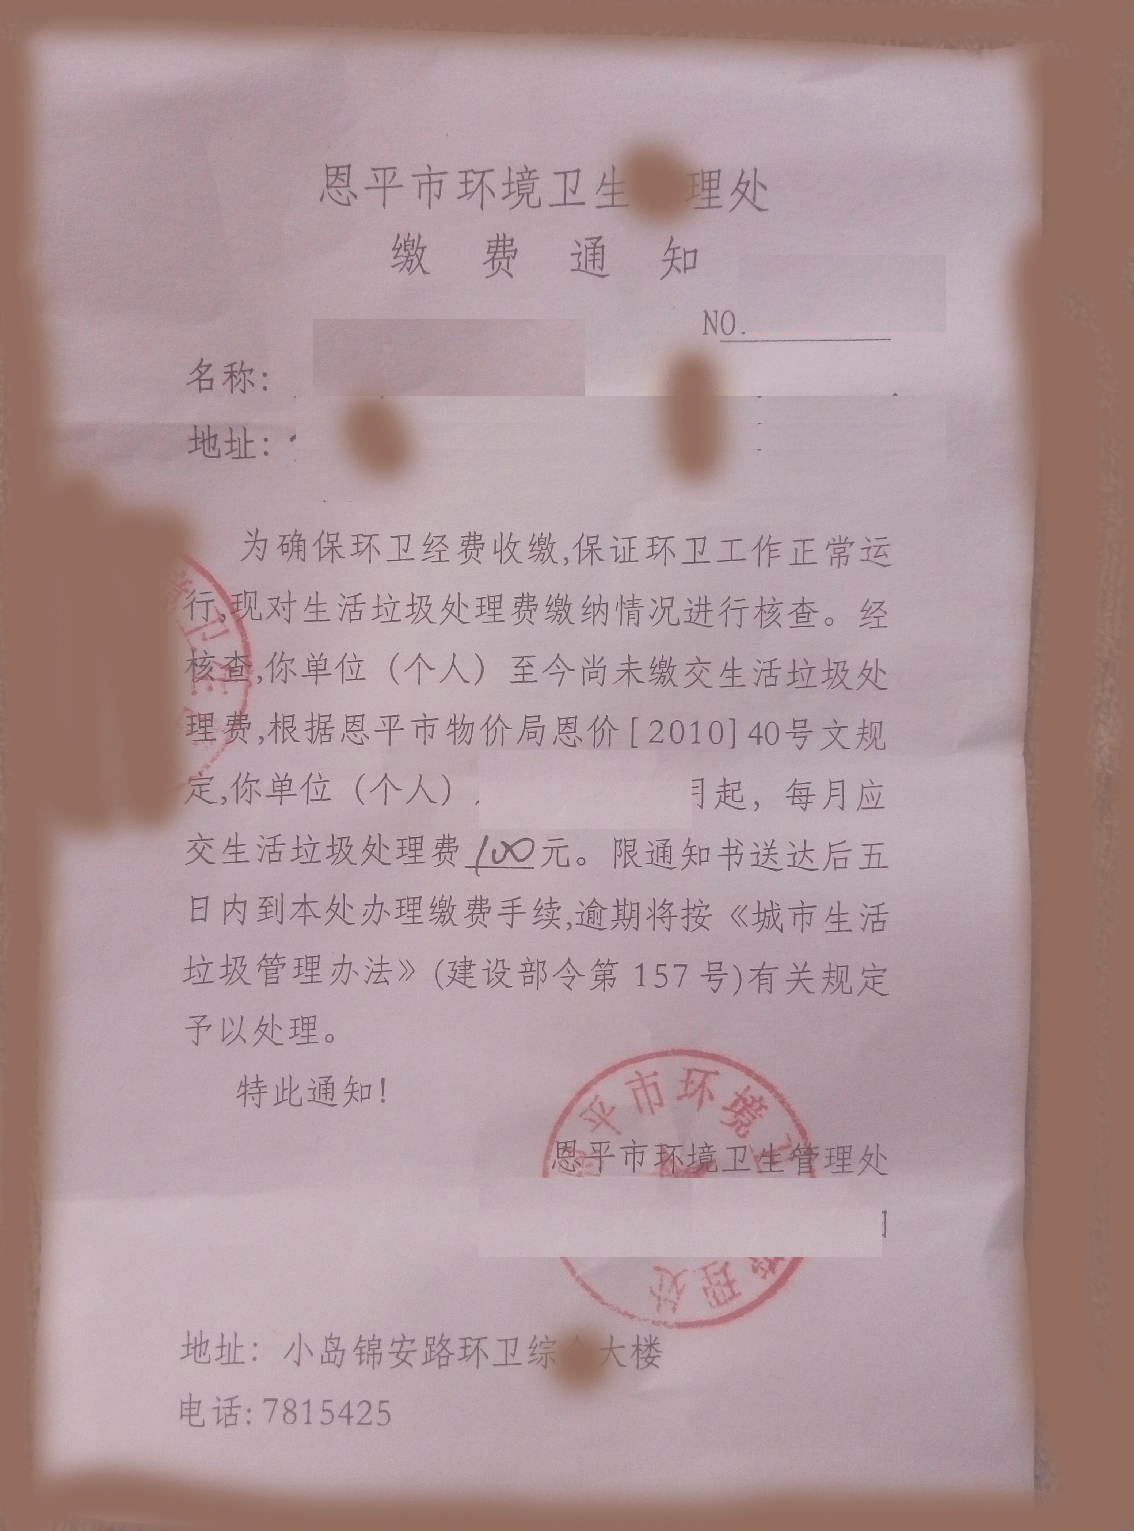 恩平市环境卫生 理处
缴费通知
NO.
名称:
地址:
为确保环卫经费收缴,保证环卫工作正常运
行,现对生活垃圾处理费缴纳情况进行核查。经
核查,你单位（个人）至今尚未缴交生活垃圾处
理费,根据恩平市物价局恩价[2010]40号文规
定,你单位（个人） 月起，每月应
交生活垃圾处理费100元。限通知书送达后五
日内到本处办理缴费手续,逾期将按《城市生活
垃圾管理办法》(建设部令第157号)有关规定
予以处理。
特此通知!
平市环境
恩平市环境卫生管理处
理处
地址：小岛锦安路环卫综 大楼
电话:7815425